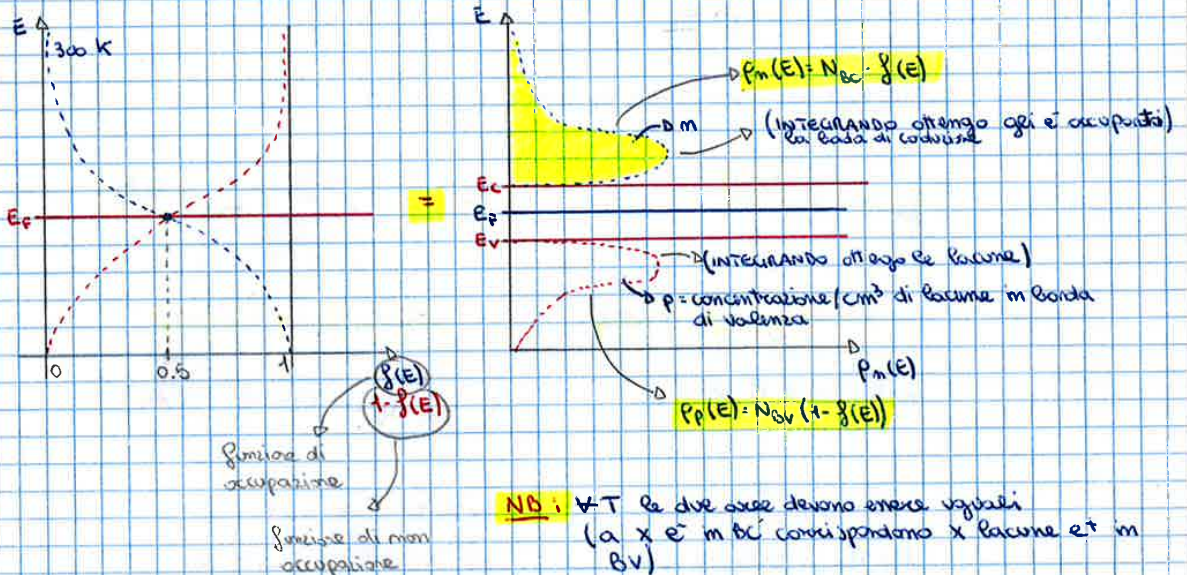 E
300 K
E_F
0
0.5
1
f(E)
1-f(E)
funzione di
occupazione
funzione di non
occupazione
=
E
ρn(E)= N_BC · f(E)
n
(INTEGRANDO ottengo gli e⁻ occupanti)
la banda di conduzione
E_C
E_F
E_V
(INTEGRANDO ottengo le lacune)
p = concentrazione/cm³ di lacune in banda
di valenza
ρn(E)
ρp(E)= N_BV (1- f(E))
NB: ∀T le due aree devono essere uguali
(a x e⁻ in BC corrispondono x lacune e⁺ in
BV)